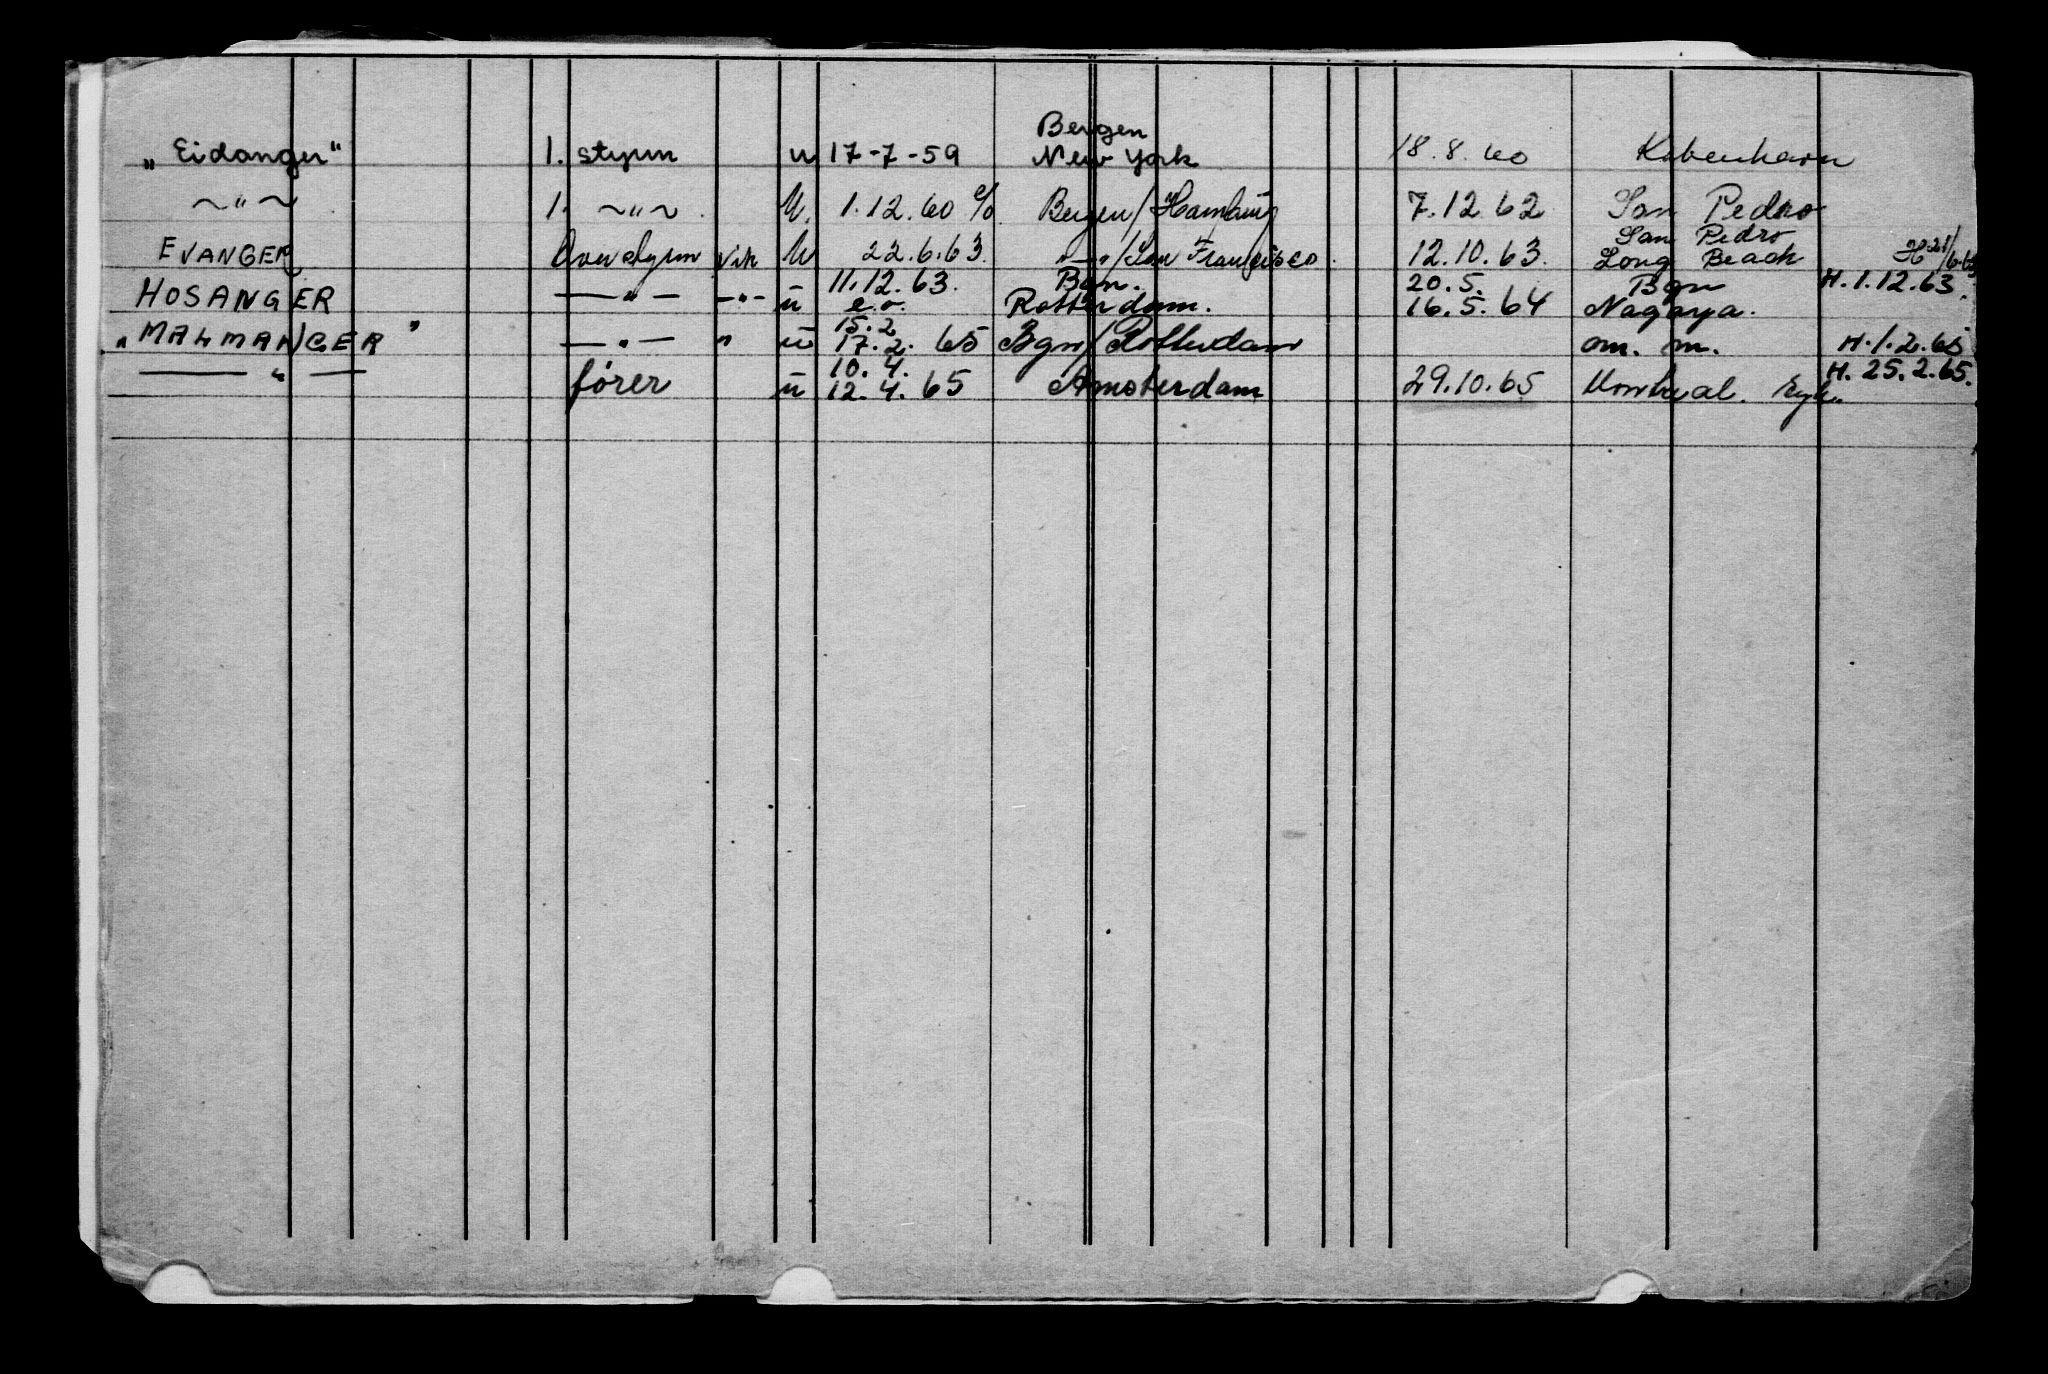 „Eidanger" 1. styrm u 17-7-59 Bergen New York 18.8.60 København
~"~ 1. ~"~ U. 1.12.60 Bergen/Hamburg 7.12.62 San Pedro
EVANGER Overstyrm vik U 22.6.63. —"—/San Francisco. 12.10.63. San Pedro Long Beach
HOSANGER —"— -"- u 11.12.63. e.o. Bgn. Rotterdam. 20.5. 16.5.64 Bgn Nagoya. H.1.12.63.
„MALMANGER" —"— " u 15.2 17.2.65 Bgn/Rotterdam om. m. H.1.2.65
—"— fører u 10.4. 12.4.65 Amsterdam 29.10.65 Montreal. H. 25.2.65.